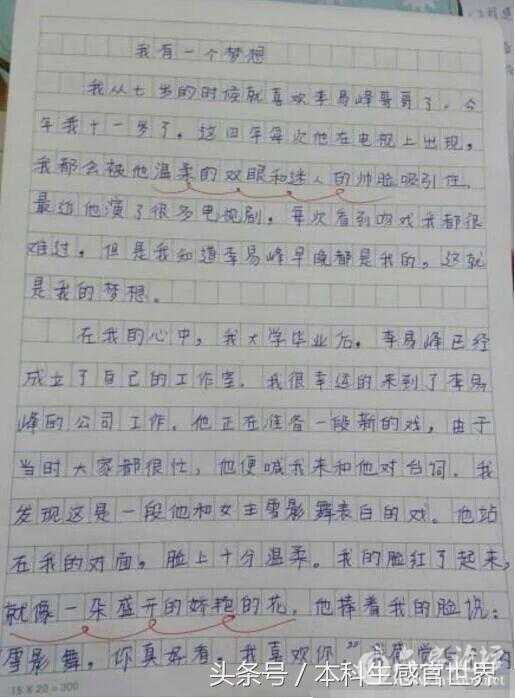 我有一个梦想
我从七岁的时候就喜欢李易峰哥哥了，今
年我十一岁了。这四年每次他在电视上出现，
我都会被他温柔的双眼和迷人的帅脸吸引住，
最近他演了很多电视剧，每次看到吻戏我都很
难过，但是我知道李易峰早晚都是我的，这就
是我的梦想。
在我的心中，我大学毕业后，李易峰已经
成立了自己的工作室，我很幸运的来到了李易
峰的公司工作，他正在准备一段新的戏，由于
当时大家都很忙，他便喊我来和他对台词，我
发现这是一段他和女主雪影舞表白的戏。他站
在我的对面，脸上十分温柔。我的脸红了起来，
就像一朵盛开的娇艳的花，他捧着我的脸说：
雪影舞，你真好看，我喜欢你”我感觉
15×20=300
头条号／本科生感官世界